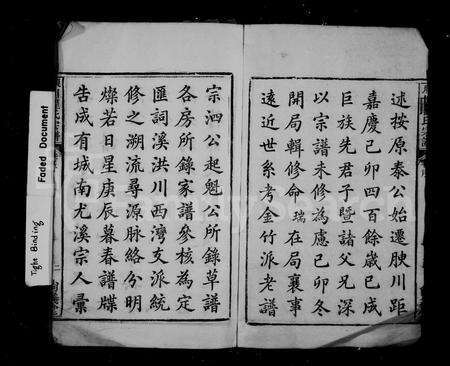 述按原泰公始遷腴川距
嘉慶己卯四百餘歲已成
巨族先君子暨諸父兄深
以宗譜未修為慮己卯冬
開局輯修命瑞在局襄事
遠近世系考金竹派老譜
宗泗公起魁公所錄草譜
各房所錄家譜參核為定
匯詞溪洪川西灣支派統
修之溯流尋源脈絡分明
燦若日星庚辰暮春譜牒
告成有城南尤溪宗人彙
Faded Document
Tight Binding